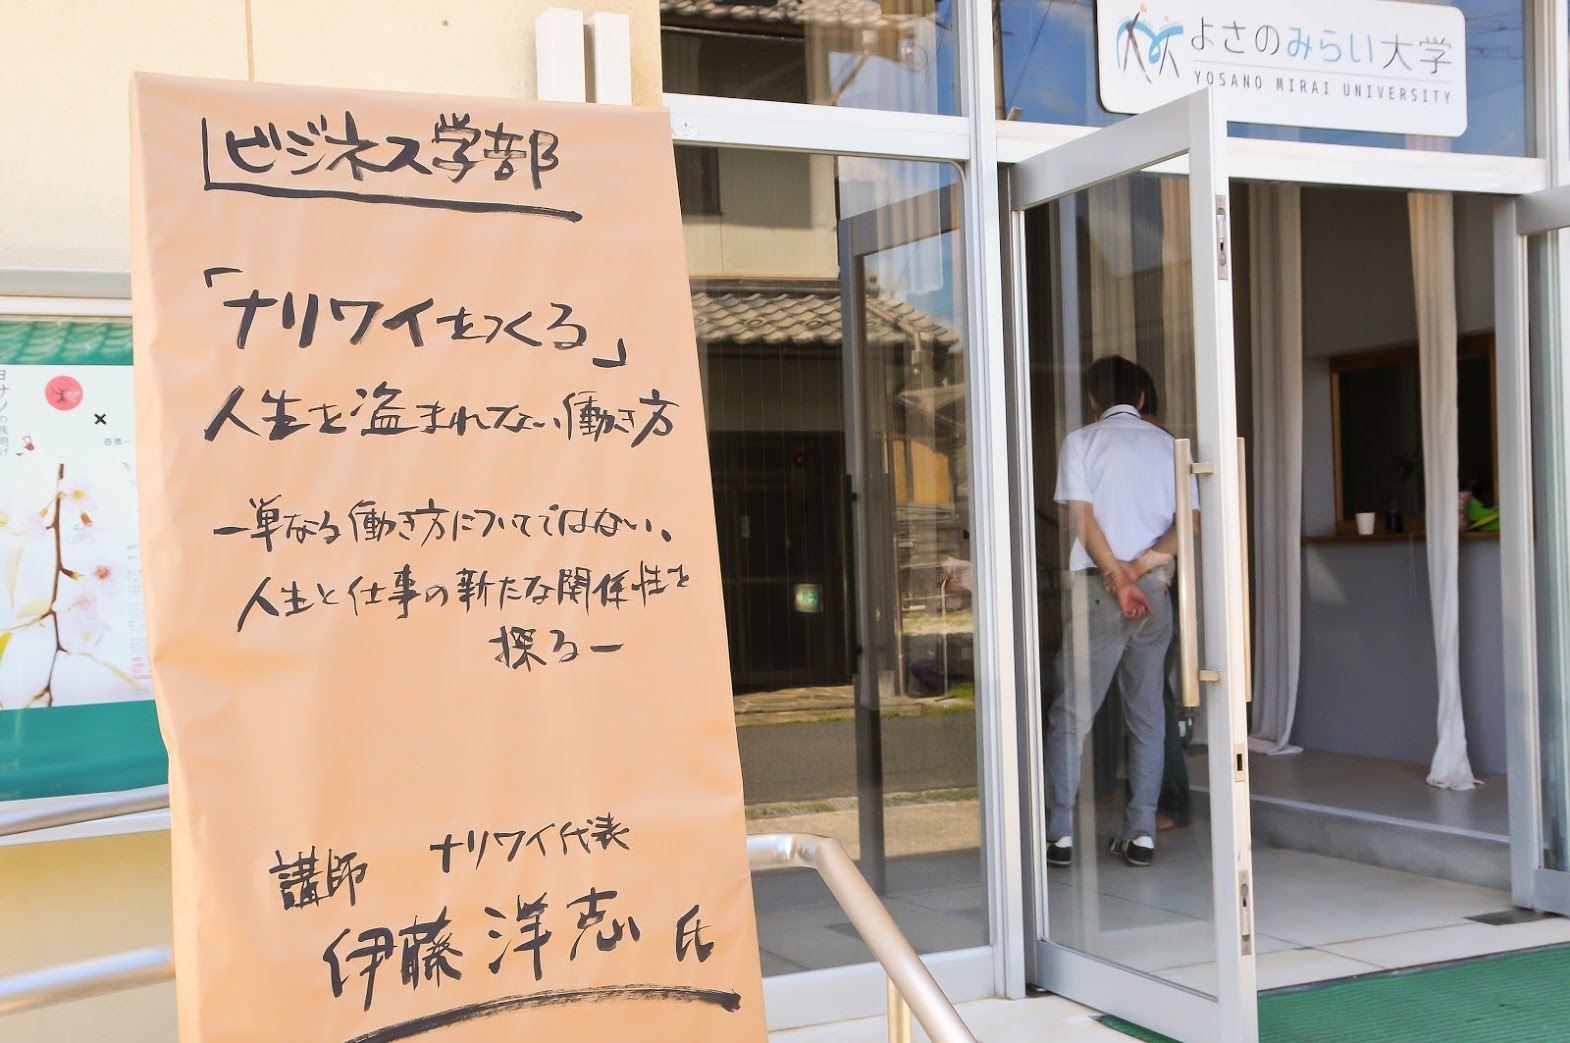 ビジネス学部
「ナリワイをつくる」
人生を盗まれない働き方
ー単なる働き方についてではない、
人生と仕事の新たな関係性を
探るー
講師
ナリワイ代表
伊藤洋志 氏
よさのみらい大学
YOSANO MIRAI UNIVERSITY
×